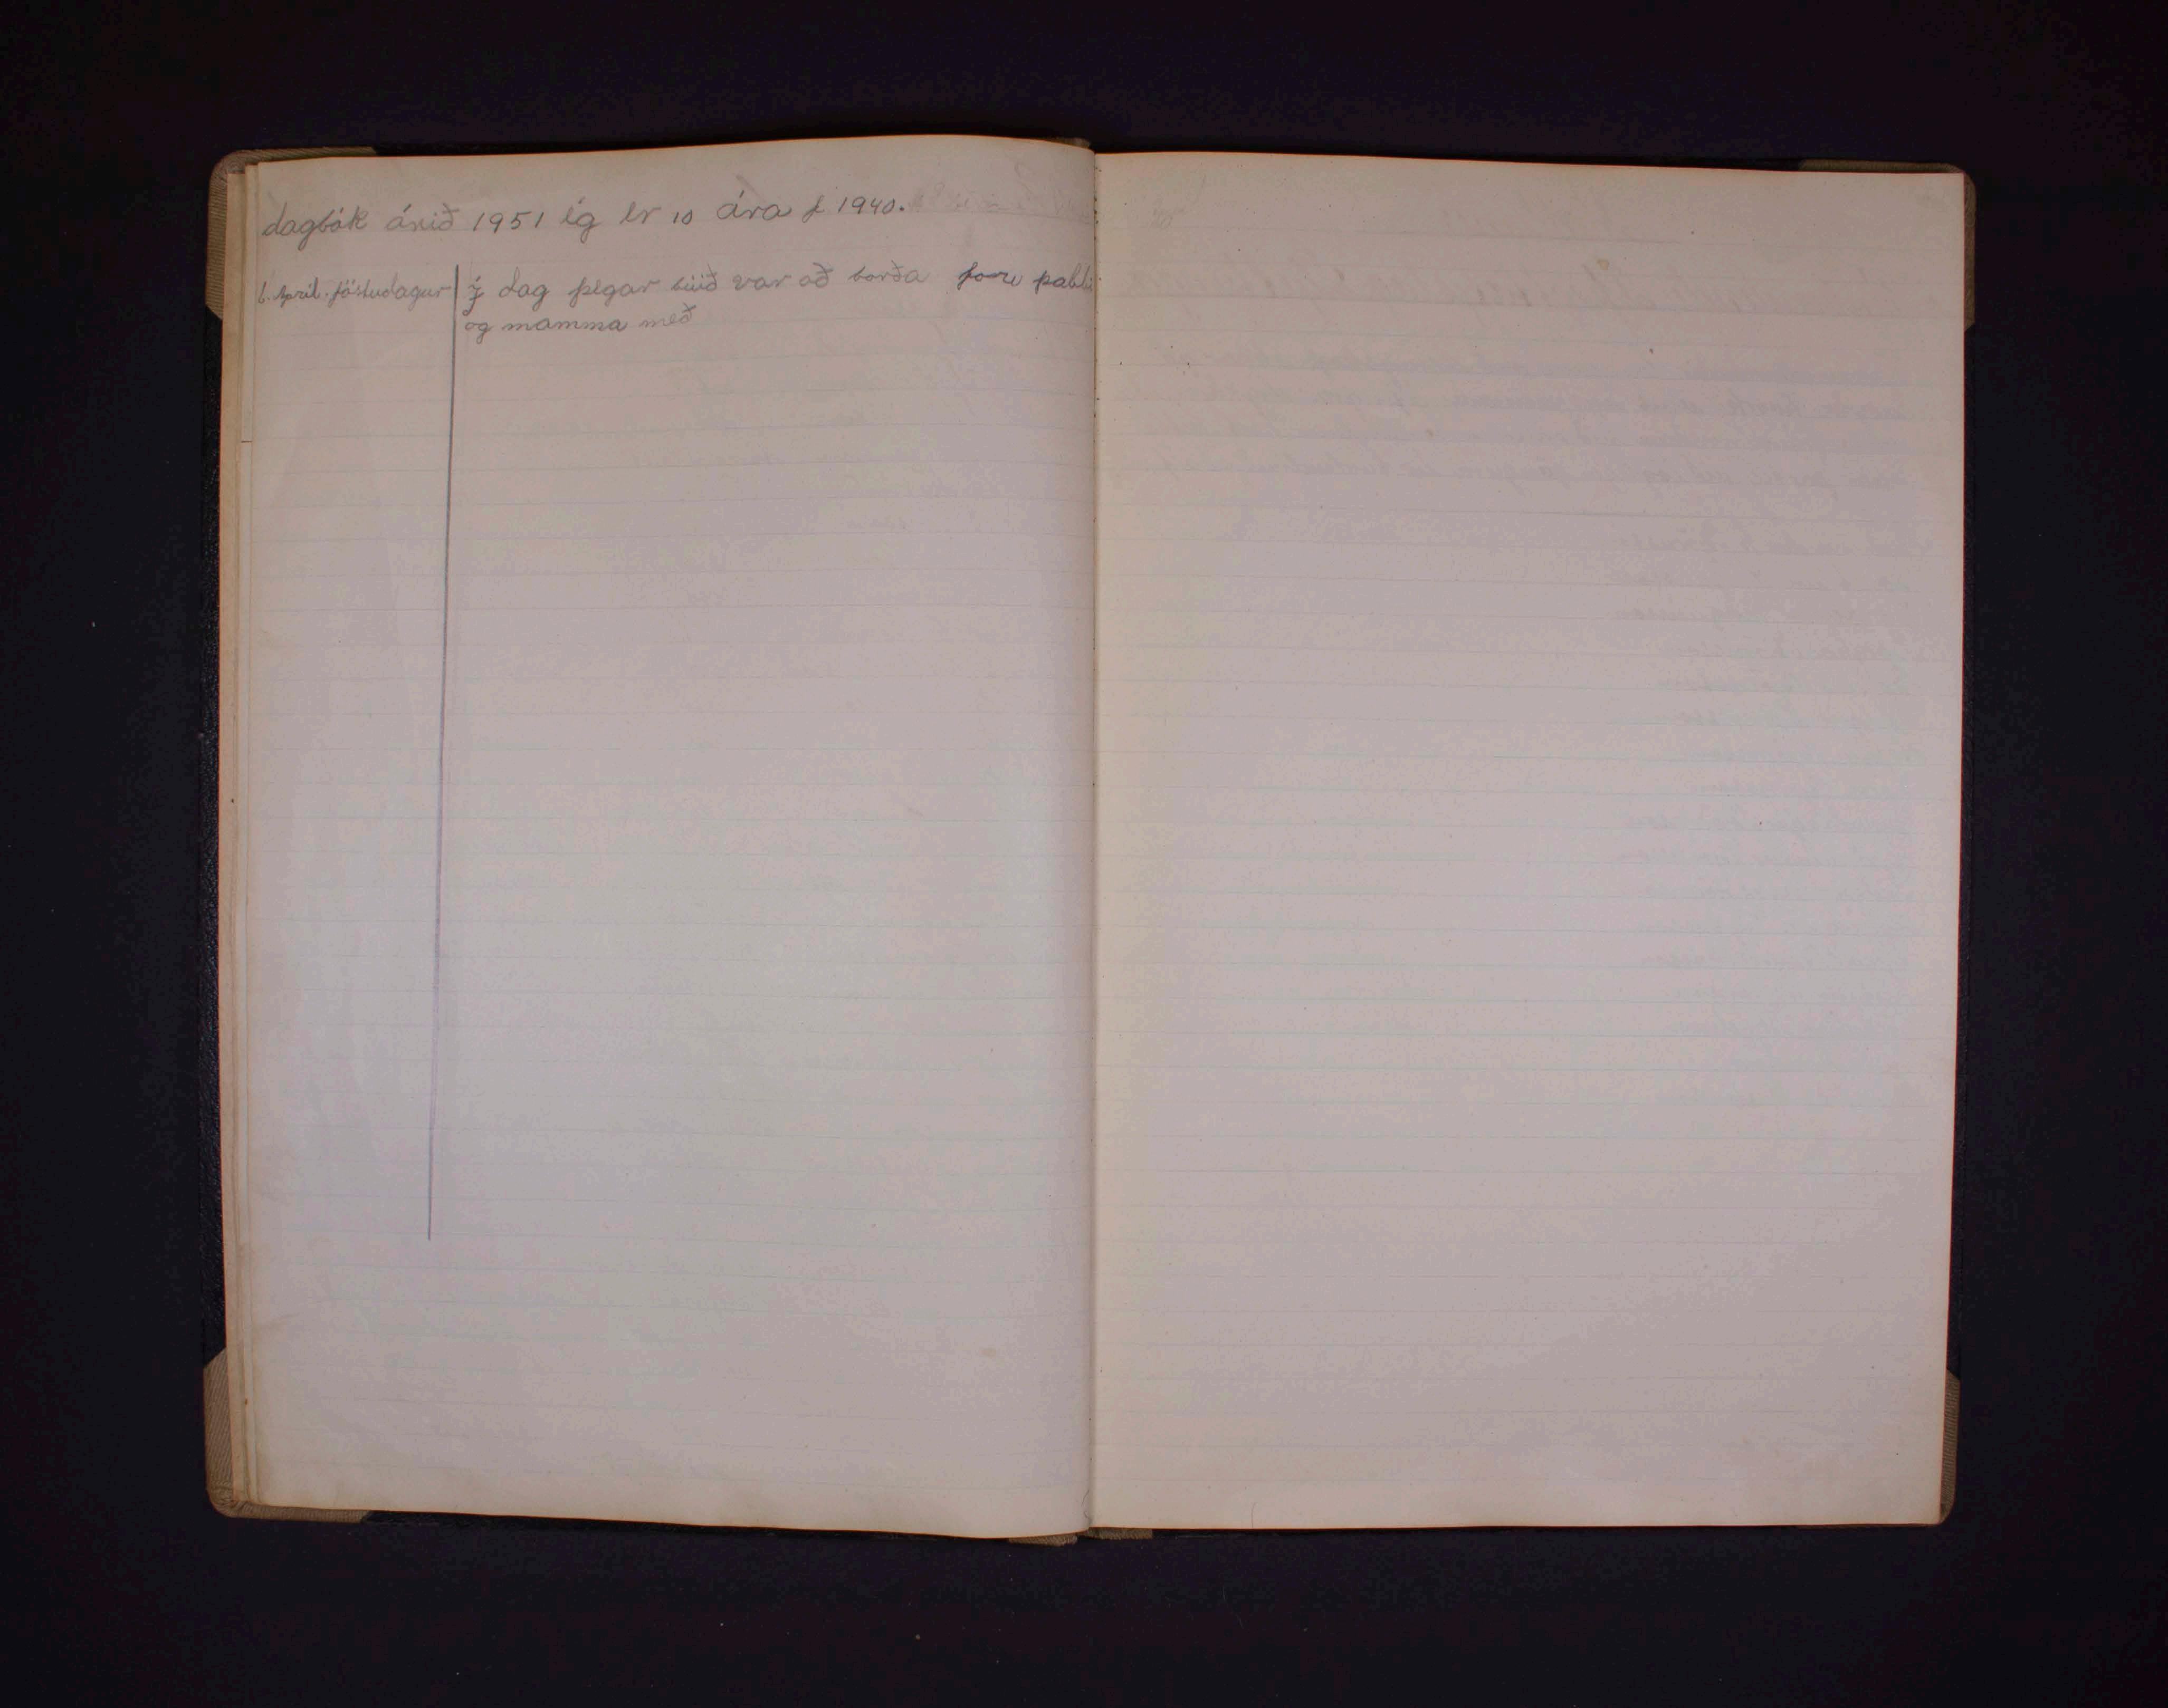 dagbók árið 1951 ég er 10 ára f 1940.
6. Apríl. föstudagur Í dag þegar búið var að borða foru pabbi
og mamma með